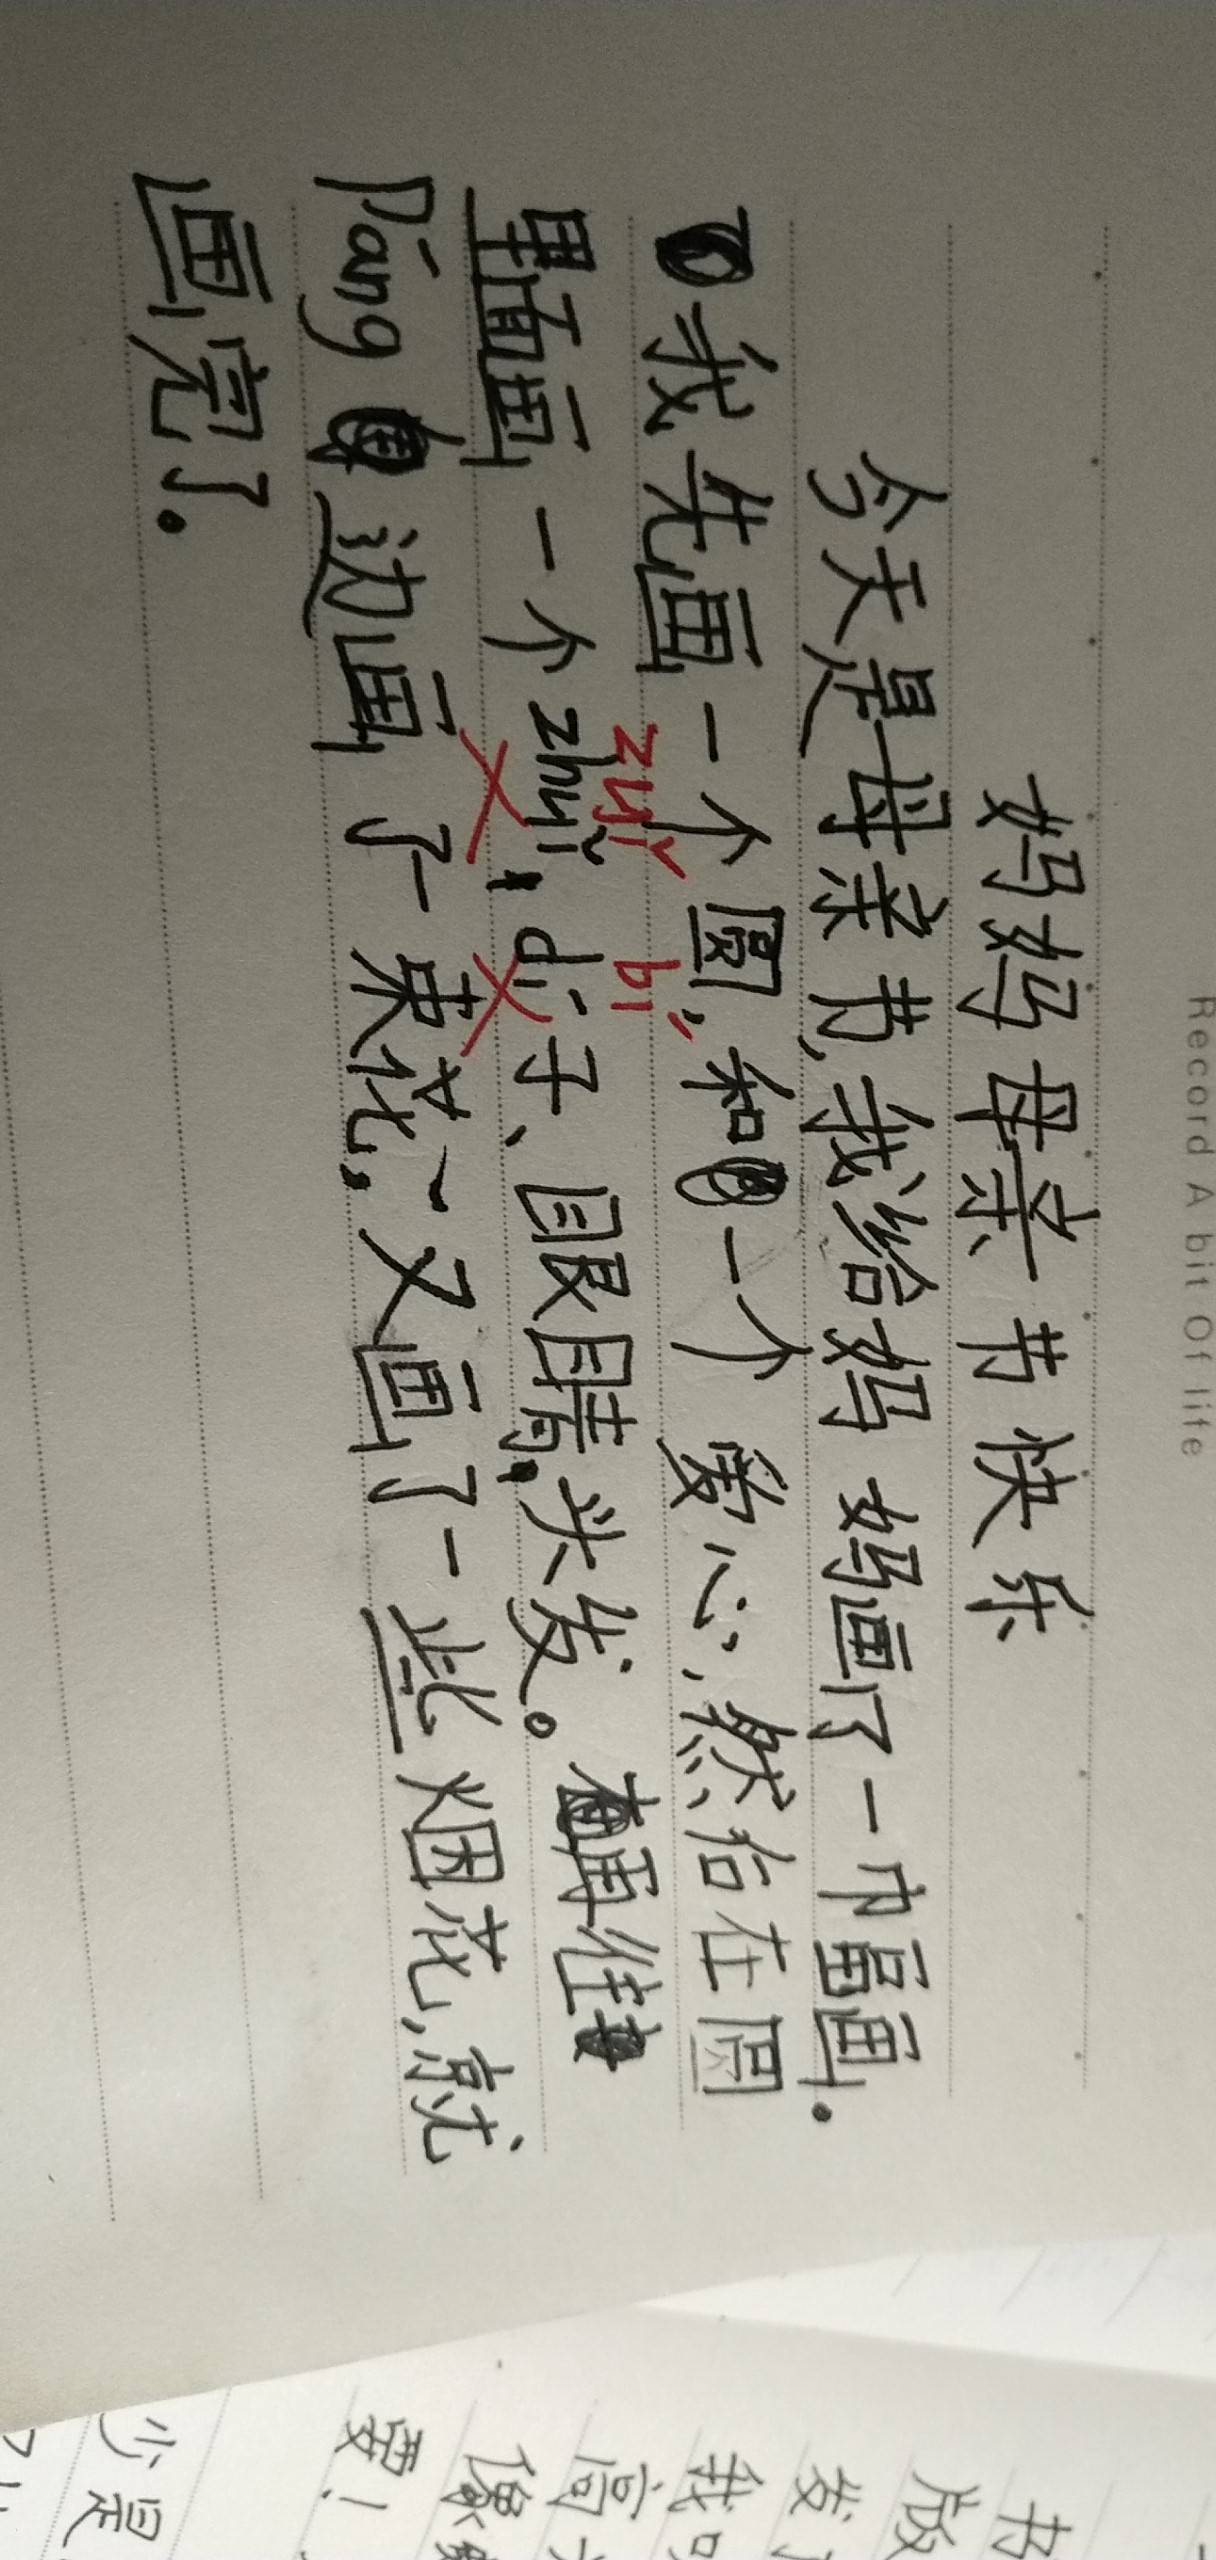 Record A bit Of life
妈妈母亲节快乐
今天是母亲节,我给妈妈画了一巾畐画。
我先画一个圆,和一个爱心,然后在圆
zuǐ bí
里面画一个zhuǐ,dí子、眼睛,头发。再往
Páng边画了一束花,又画了一些烟花,就
画完了。
书
版
发
我
高
像
要!
少是